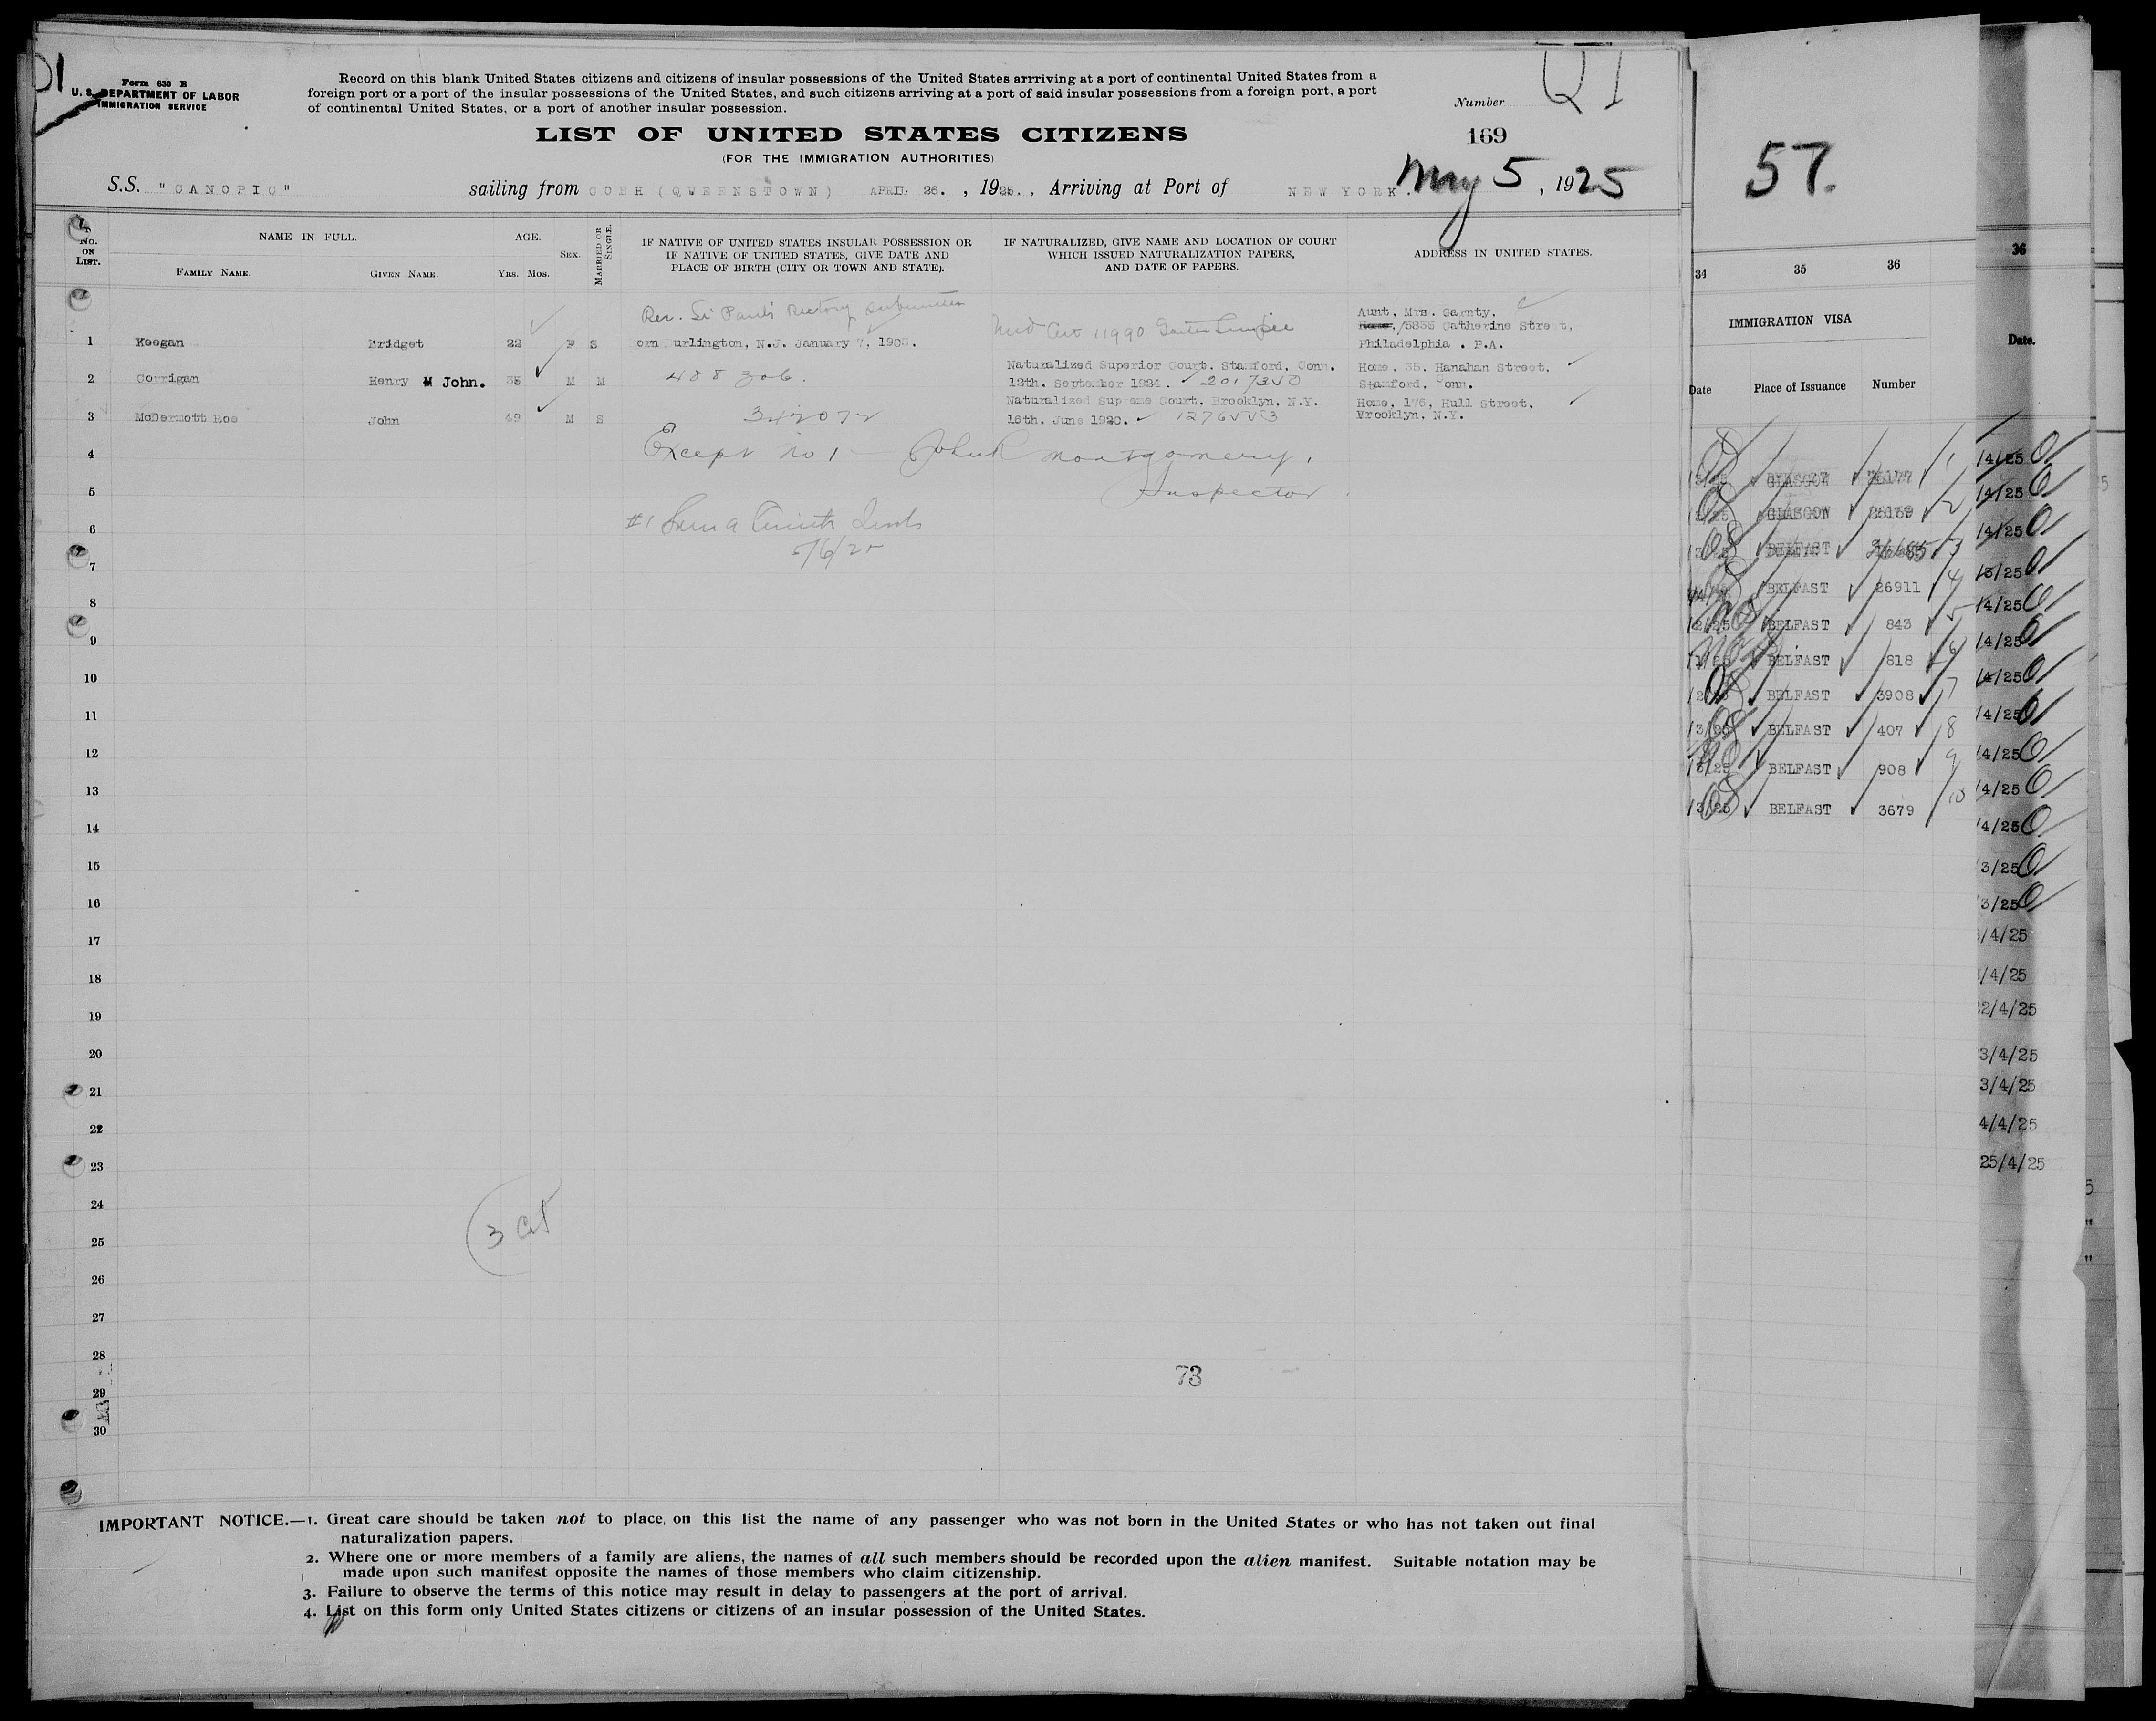 Form 630 B
U. S. DEPARTMENT OF LABOR
IMMIGRATION SERVICE
Record on this blank United States citizens and citizens of insular possessions of the United States arrriving at a port of continental United States from a
foreign port or a port of the insular possessions of the United States, and such citizens arriving at a port of said insular possessions from a foreign port, a port
of continental United States, or a port of another insular possession.
Number
LIST OF UNITED STATES CITIZENS
169
(FOR THE IMMIGRATION AUTHORITIES)
S.S. "CANOPIC" sailing from COBH (QUEENSTOWN) APRIL 26. , 1925. , Arriving at Port of NEW YORK. May 5 , 1925
No. ON LIST.
NAME IN FULL.
FAMILY NAME.
GIVEN NAME.
AGE.
YRS. MOS.
SEX.
MARRIED OR SINGLE.
IF NATIVE OF UNITED STATES INSULAR POSSESSION OR
IF NATIVE OF UNITED STATES, GIVE DATE AND
PLACE OF BIRTH (CITY OR TOWN AND STATE).
IF NATURALIZED, GIVE NAME AND LOCATION OF COURT
WHICH ISSUED NATURALIZATION PAPERS,
AND DATE OF PAPERS.
ADDRESS IN UNITED STATES.
Rev. St Pauls Rectory
11990
Aunt, Mrs. Garnty,
5835 Catherine Street,
1 Keegan Bridget 22 F S orn urlington, N.J. January 7, 1903. Philadelphia . P.A.
Naturalized Superior Court, Stamford, Conn. Home, 35, Hanahan Street,
2 Corrigan Henry M John. 35 M M 488306. 13th. September 1924. Stamford, onn.
Naturalized Supreme Court, Brooklyn, N.Y. Home, 176, Hull Street,
3 McDermott Roe John 49 M S 342072 16th. June 1920. Brooklyn, N.Y.
4 Except No 1 John R Montgomery,
5 Inspector
6 #1
5/6/25
7
8
9
10
11
12
13
14
15
16
17
18
19
20
21
22
23
24
3 Cit
25
26
27
28
73
29
30
IMPORTANT NOTICE.—1. Great care should be taken not to place, on this list the name of any passenger who was not born in the United States or who has not taken out final
naturalization papers.
2. Where one or more members of a family are aliens, the names of all such members should be recorded upon the alien manifest. Suitable notation may be
made upon such manifest opposite the names of those members who claim citizenship.
3. Failure to observe the terms of this notice may result in delay to passengers at the port of arrival.
4. List on this form only United States citizens or citizens of an insular possession of the United States.
57.
34 35 36
IMMIGRATION VISA
Date Place of Issuance Number
GLASGOW 1
GLASGOW 2
BELFAST 3
BELFAST 26911 4
BELFAST 843 5
BELFAST 818 6
BELFAST 3908 7
BELFAST 407 8
BELFAST 908 9
BELFAST 3679 10
36
Date.
/4/25
/4/25
/4/25
/3/25
/4/25
/4/25
/4/25
/4/25
/4/25
/4/25
/4/25
3/25
3/25
/4/25
/4/25
22/4/25
3/4/25
3/4/25
4/4/25
25/4/25